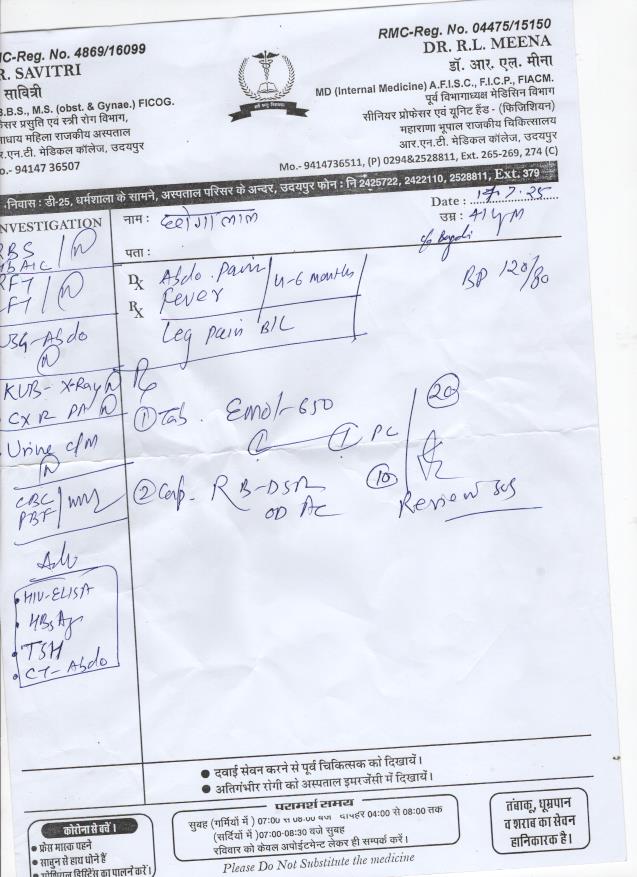 RMC-Reg. No. 04475/15150
DR. R.L. MEENA
डॉ. आर. एल. मीना
MD (Internal Medicine) A.F.I.S.C., F.I.C.P., FIACM.
पूर्व विभागाध्यक्ष मेडिसिन विभाग
सीनियर प्रोफेसर एवं यूनिट हैड - (फिजिशियन)
महाराणा भूपाल राजकीय चिकित्सालय
आर.एन.टी. मेडिकल कॉलेज, उदयपुर
Mo.- 9414736511, (P) 0294&2528811, Ext. 265-269, 274 (C)
MC-Reg. No. 4869/16099
R. SAVITRI
सावित्री
B.B.S., M.S. (obst. & Gynae.) FICOG.
फेसर प्रसुति एवं स्त्री रोग विभाग,
नाधाय महिला राजकीय अस्पताल
र.एन.टी. मेडिकल कॉलेज, उदयपुर
o.- 94147 36507
निवास : डी-25, धर्मशाला के सामने, अस्पताल परिसर के अन्दर, उदयपुर फोन : नि 2425722, 2422110, 2528811, Ext. 379
Date : 17.7.25
नाम : छोगालाल
उम्र : 41y M
पता :
c/o Bagdi
INVESTIGATION
RBS
HbA1C / N
RFT
LFT / N
USG-Abdo
N
KUB- X-Ray N
CXR PA N
Urine c/M
N
CBC
PBF
Adv
• HIV-ELISA
• HBsAg
• TSH
• CT-Abdo
Dx Abdo. Pain
Rx Fever / 4-6 months
Leg pain B/L
BP 120/80
Rx
① Tab. Emol-650
1 1 PC
20
② Cap. RB-DSR
OD AC
10
Review SOS
● दवाई सेवन करने से पूर्व चिकित्सक को दिखायें।
● अतिगंभीर रोगी को अस्पताल इमरजेंसी में दिखायें।
कोरोना से बचें।
● फ्रेस मास्क पहने
● साबुन से हाथ धोने हैं
● सोशियल डिस्टेंस का पालन करें।
परामर्श समय
सुबह (गर्मियों में ) 07:00 से 08:00 बजे दोपहर 04:00 से 08:00 तक
(सर्दियों में )07:00-08:30 बजे सुबह
रविवार को केवल अपोईंटमेन्ट लेकर ही सम्पर्क करें।
Please Do Not Substitute the medicine
तंबाकू, धूम्रपान
व शराब का सेवन
हानिकारक है।